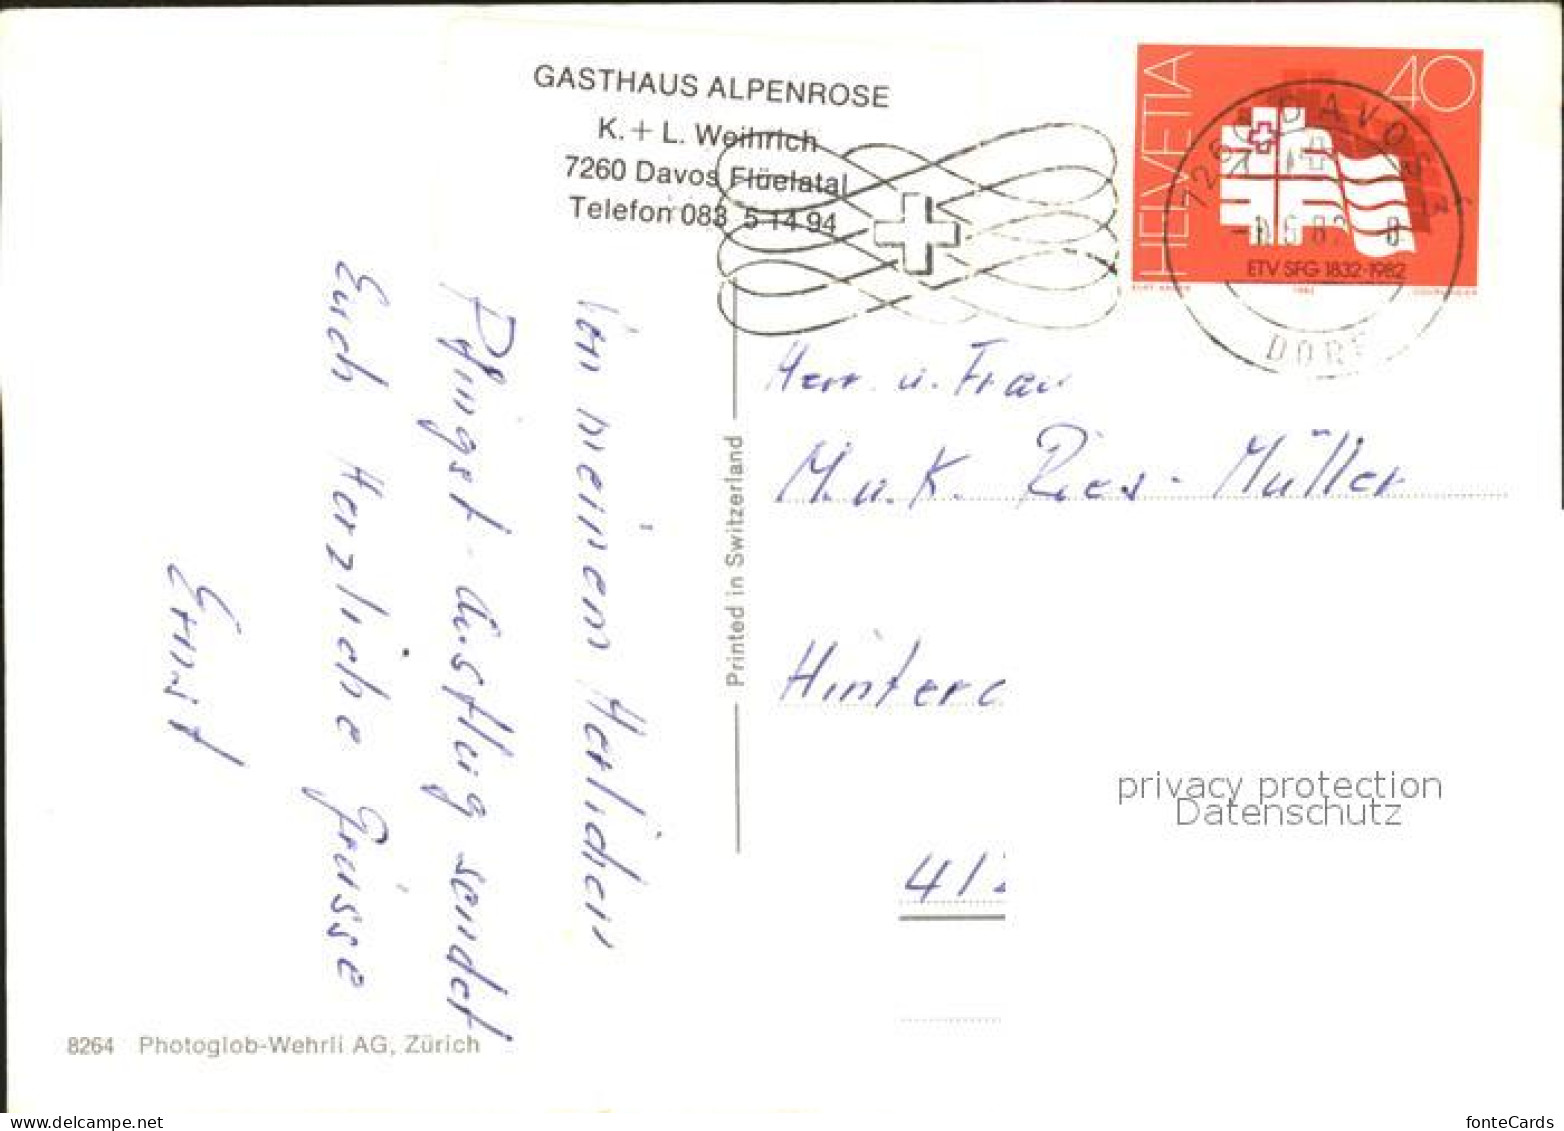 GASTHAUS ALPENROSE
K. + L. Weihrich
7260 Davos Flüelatal
Telefon 083 5 14 94
HELVETIA
40
ETV SFG 1832-1982
1982
COURVOISIER
7260 DAVOS 3
DORF
Von meinem Herlichen
Pfingst-Ausflug sendet
Euch Herzliche Grüsse
Ernst
Printed in Switzerland
Herr. u. Frau
M. u. K. Ries-Müller
Hinter
412
privacy protection
Datenschutz
8264 Photoglob-Wehrli AG, Zürich
delcampe.net
fonteCards